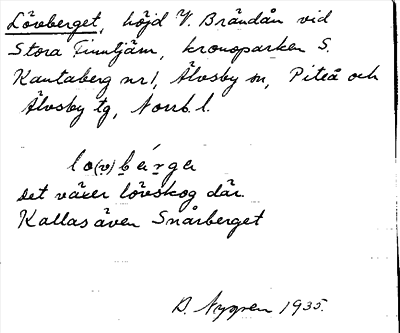 Lövberget, höjd V. Brändån vid
Stora Finntjärn, kronoparken S.
Kantaberg nr 1, Älvsby sn, Piteå och
Älvsby tg, Norrb. l.
lo(v)bärga
Det växer lövskog där.
Kallas även Snårberget
D. Nygren 1935.